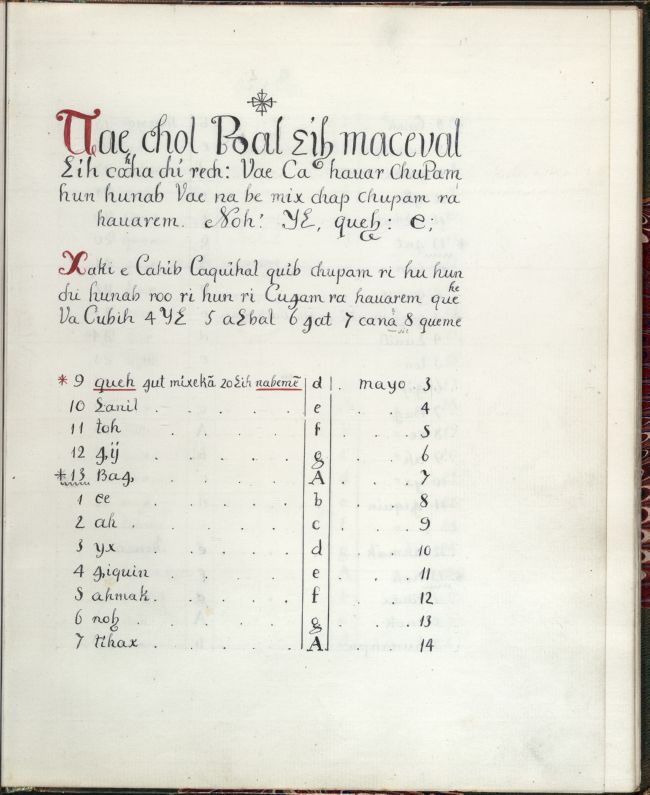 Vae chol Poal Ɛih maceval
Ɛih cahha chi rech: Vae Ca hauar Chupam
hun hunab Vae na be mix chap chupam ra
hauarem. Noh: YƐ, queh: e;
Xaki e Cahib Caquihal quib chupam ri hu hun
chi hunab roo ri hun ri Cuɡam ra hauarem quehe
Va Cubih 4 YƐ 5 aƐbal 6 ɡat 7 cana 8 queme
* 9 queh ɡut mixekã 20 Ɛih nabemẽ d . mayo 3
10 Ɛanil . . . . . e . . 4
11 toh . . . . . f . . 5
12 ɡij . . . . . g . . 6
* 13 Baɡ . . . . . A . . 7
1 ee . . . . . b . . 8
2 ah . . . . . c . . 9
3 yx . . . . . d . . 10
4 ɡiquin . . . . e . . 11
5 ahmak . . . . f . . 12
6 noh . . . . . g . . 13
7 tihax . . . . A . . 14